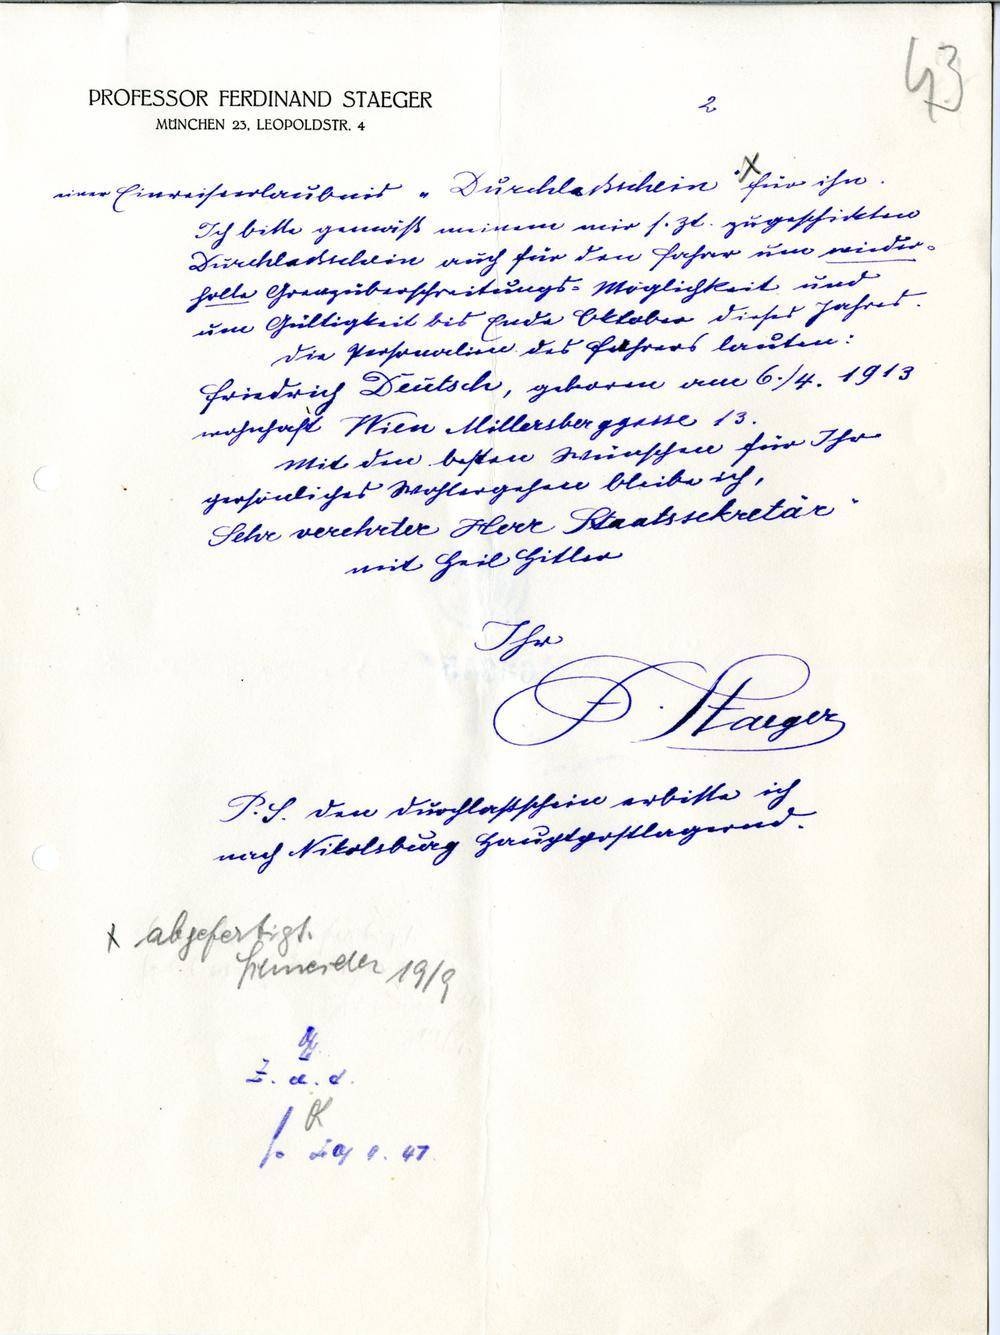 43
PROFESSOR FERDINAND STAEGER
MÜNCHEN 23, LEOPOLDSTR. 4
2
einer Einreiseerlaubnis „Durchlaßschein“ x für ihn.
Ich bitte gemäß meinem mir s. Zt. zugeschickten
Durchlaßschein auch für den Fahrer um wieder-
holte Grenzüberschreitungs-Möglichkeit und
um Gültigkeit bis Ende Oktober dieses Jahres.
Die Personalien des Fahrers lauten:
Friedrich Deutsch, geboren am 6./4. 1913
wohnhaft Wien Millersberggasse 13.
Mit den besten Wünschen für Ihr
persönliches Wohlergehen bleibe ich,
Sehr verehrter Herr Staatssekretär
mit Heil Hitler
Ihr
F. Staeger
P.S. den Durchlaßschein erbitte ich
nach Nikolsburg Hauptpostlagernd.
x abgefertigt.
Schneider 19/9
Z. d. A.